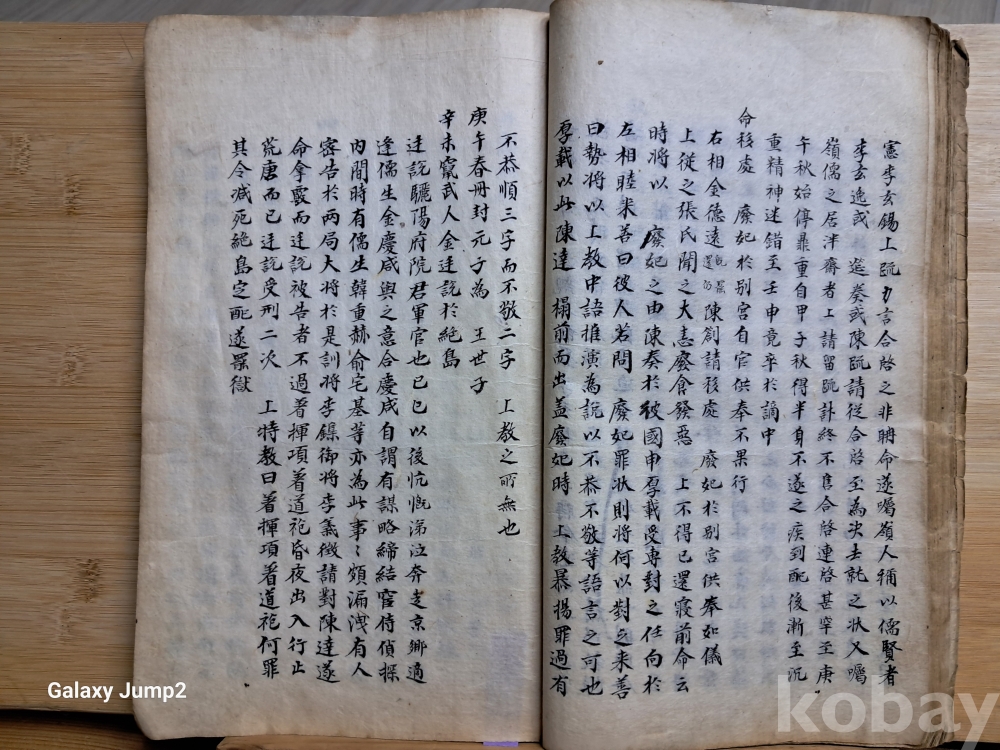 憲李玄錫上疏力言合啓之非聃命遂嘱嶺人稱以儒賢者
李玄逸或進奏或陳疏請從合啓至為決去就之状又嘱
嶺儒之居泮齋者上請留疏計終不售合啓連啓甚窂至庚
午秋始停㬥重自甲子秋得半身不遂之疾到配後漸至沉
重精神迷錯至壬申竟卒於謫中
命移處 廢妃於别宮自官供奉不果行
右相金德遠 陳劄請移處 廢妃於别宮供奉如儀
上從之張氏聞之大恚廢食發惡 上不得已還寢前命云
時將以 廢妃之由陳奏於彼國申厚載受專對之任向於
左相睦来善曰彼人若問 廢妃罪状則將何以對之来善
曰勢將以上教中語推演為說以不恭不敬等語言之可也
厚載以此陳達 榻前而出盖廢妃時 上教暴揚罪過有
不恭順三字而不敬二字 上教之所無也
庚午春冊封元子為 王世子
辛未竄武人金廷說於絶島
廷說驪陽府院君軍官也己巳以後忼慨涕泣奔走京鄉適
逢儒生金慶咸與之意合慶咸自謂有謀略締結宦侍偵探
內間時有儒生韓重爀俞宅基等亦為此事〻頗漏洩有人
密告於兩局大將於是訓將李鏶御將李義徵請對陳達遂
命拿覈而廷說被告者不過著揮項着道袍昏夜出入行止
荒唐而已廷說受刑二次 上特教曰著揮項着道袍何罪
其令減死絶島定配遂罷獄
Galaxy Jump2
kobay